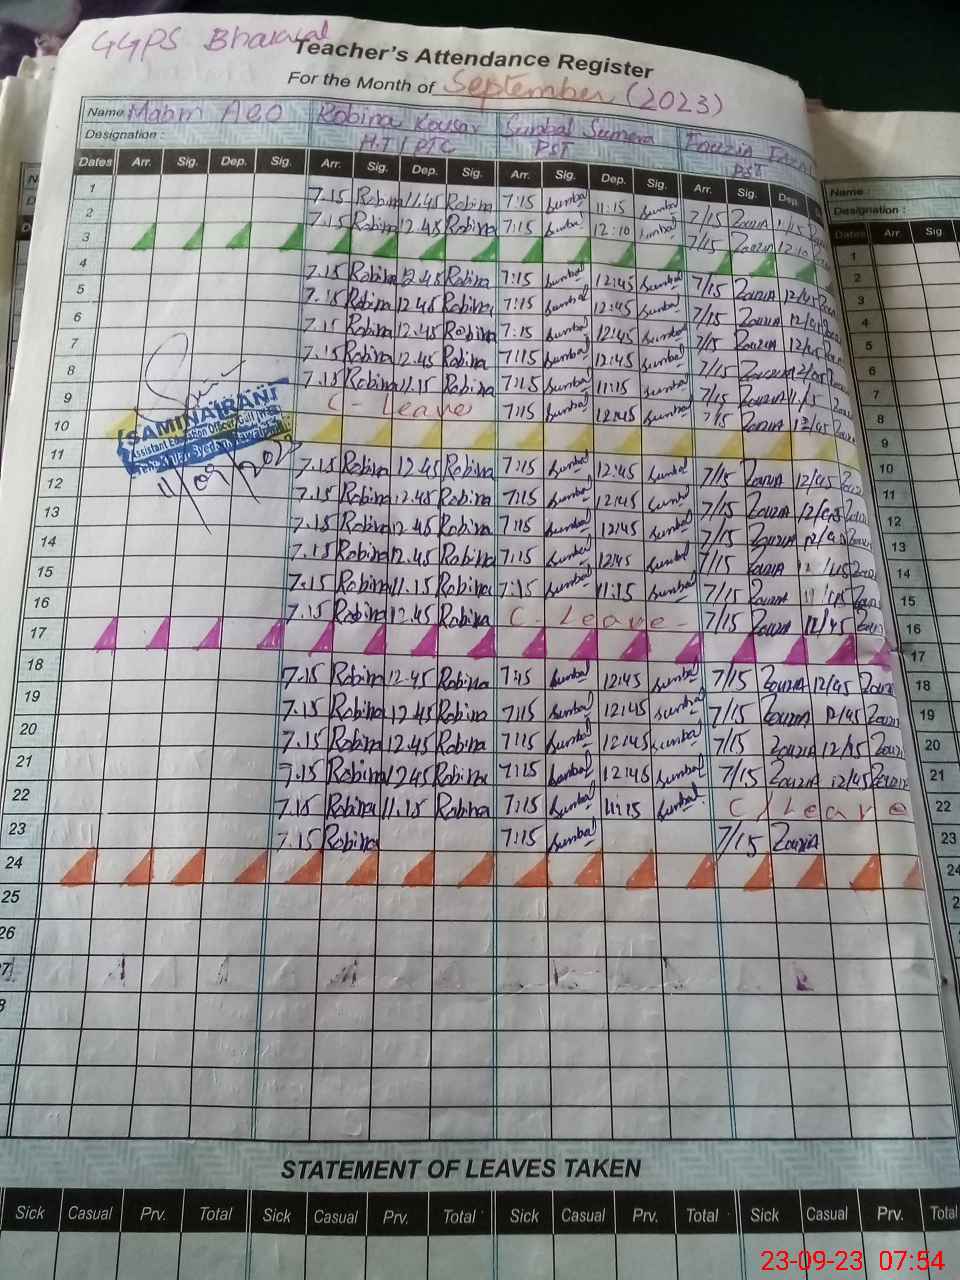 GGPS Bharakal
Teacher's Attendance Register
For the Month of September (2023)
Name Mahm AEO Robina Kousar Sunbal Sumera Fouzia
Designation : H.T / PTC PST PST
Dates Arr. Sig. Dep. Sig. Arr. Sig. Dep. Sig. Arr. Sig. Dep. Sig. Arr. Sig. Dep.
1 7.15 Robina 11.45 Robina 7:15 Sunbal 11:15 Sunbal 7/15 Zouzia 11/15
2 7.15 Robina 12.45 Robina 7:15 Sunbal 12:10 Sunbal 7/15 Zouzia 12/10
3
4 7.15 Robina 12.45 Robina 7:15 Sunbal 12:45 Sunbal 7/15 Zouzia 12/45
5 7.15 Robina 12.45 Robina 7:15 Sunbal 12:45 Sunbal 7/15 Zouzia 12/45
6 7.15 Robina 12.45 Robina 7:15 Sunbal 12:45 Sunbal 7/15 Zouzia 12/45
7 7.15 Robina 12.45 Robina 7:15 Sunbal 12:45 Sunbal 7/15 Zouzia 12/45
8 7.15 Robina 11.15 Robina 7:15 Sunbal 11:15 Sunbal 7/15 Zouzia 11/15
9 C - Leave 7:15 Sunbal 12:45 Sunbal 7/15 Zouzia 12/45
SAMINA RANI
Assistant Education Officer
11/09/2023
10
11 7.15 Robina 12.45 Robina 7:15 Sunbal 12:45 Sunbal 7/15 Zouzia 12/45
12 7.15 Robina 12.45 Robina 7:15 Sunbal 12:45 Sunbal 7/15 Zouzia 12/45
13 7.15 Robina 12.45 Robina 7:15 Sunbal 12:45 Sunbal 7/15 Zouzia 12/45
14 7.15 Robina 12.45 Robina 7:15 Sunbal 12:45 Sunbal 7/15 Zouzia
15 7.15 Robina 11.15 Robina 7:15 Sunbal 11:15 Sunbal 7/15 Zouzia
16 7.15 Robina 12.45 Robina C - Leave - 7/15 Zouzia 12/45
17
18 7.15 Robina 12.45 Robina 7:15 Sunbal 12:45 Sunbal 7/15 Zouzia 12/45 Zouzia
19 7.15 Robina 12.45 Robina 7:15 Sunbal 12:45 Sunbal 7/15 Zouzia 12/45 Zouzia
20 7.15 Robina 12.45 Robina 7:15 Sunbal 12:45 Sunbal 7/15 Zouzia 12/45 Zouzia
21 7.15 Robina 12.45 Robina 7:15 Sunbal 12:45 Sunbal 7/15 Zouzia 12/45 Zouzia
22 7.15 Robina 11.15 Robina 7:15 Sunbal 11:15 Sunbal C/Leave
23 7.15 Robina 7:15 Sunbal 7/15 Zouzia
24
25
26
STATEMENT OF LEAVES TAKEN
Sick Casual Prv. Total Sick Casual Prv. Total Sick Casual Prv. Total Sick Casual Prv. Total
Name :
Designation :
Dates Arr. Sig.
1
2
3
4
5
6
7
8
9
10
11
12
13
14
15
16
17
18
19
20
21
22
23
24
23-09-23 07:54